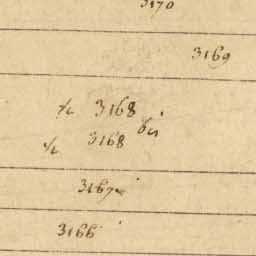 3170
3169
3168
3168 bis
3167
3166